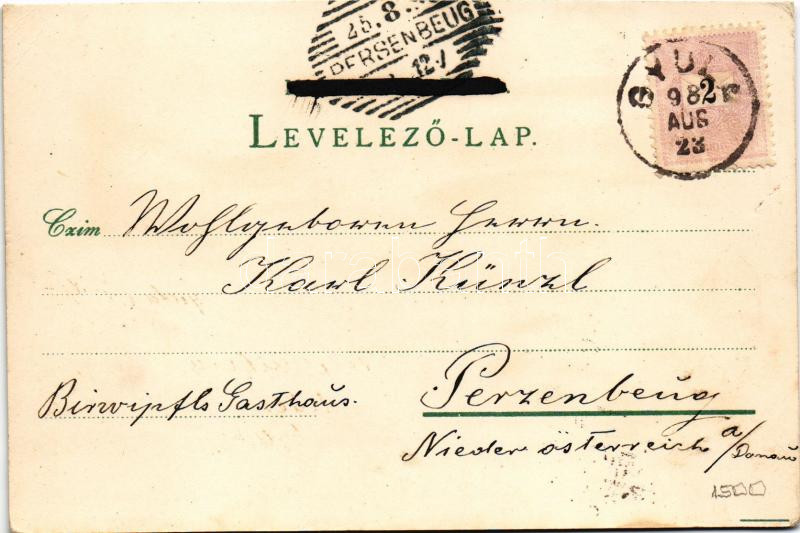 25.8.
PERSENBEUG
12
LEVELEZŐ-LAP.
GYULA
2
98
AUG
23
Czim Wohlgeboren Herrn.
Karl Künzl
darabanth
Birwipfls Gasthaus.
Perzenbeug
Nieder österreich a/Donau
1500